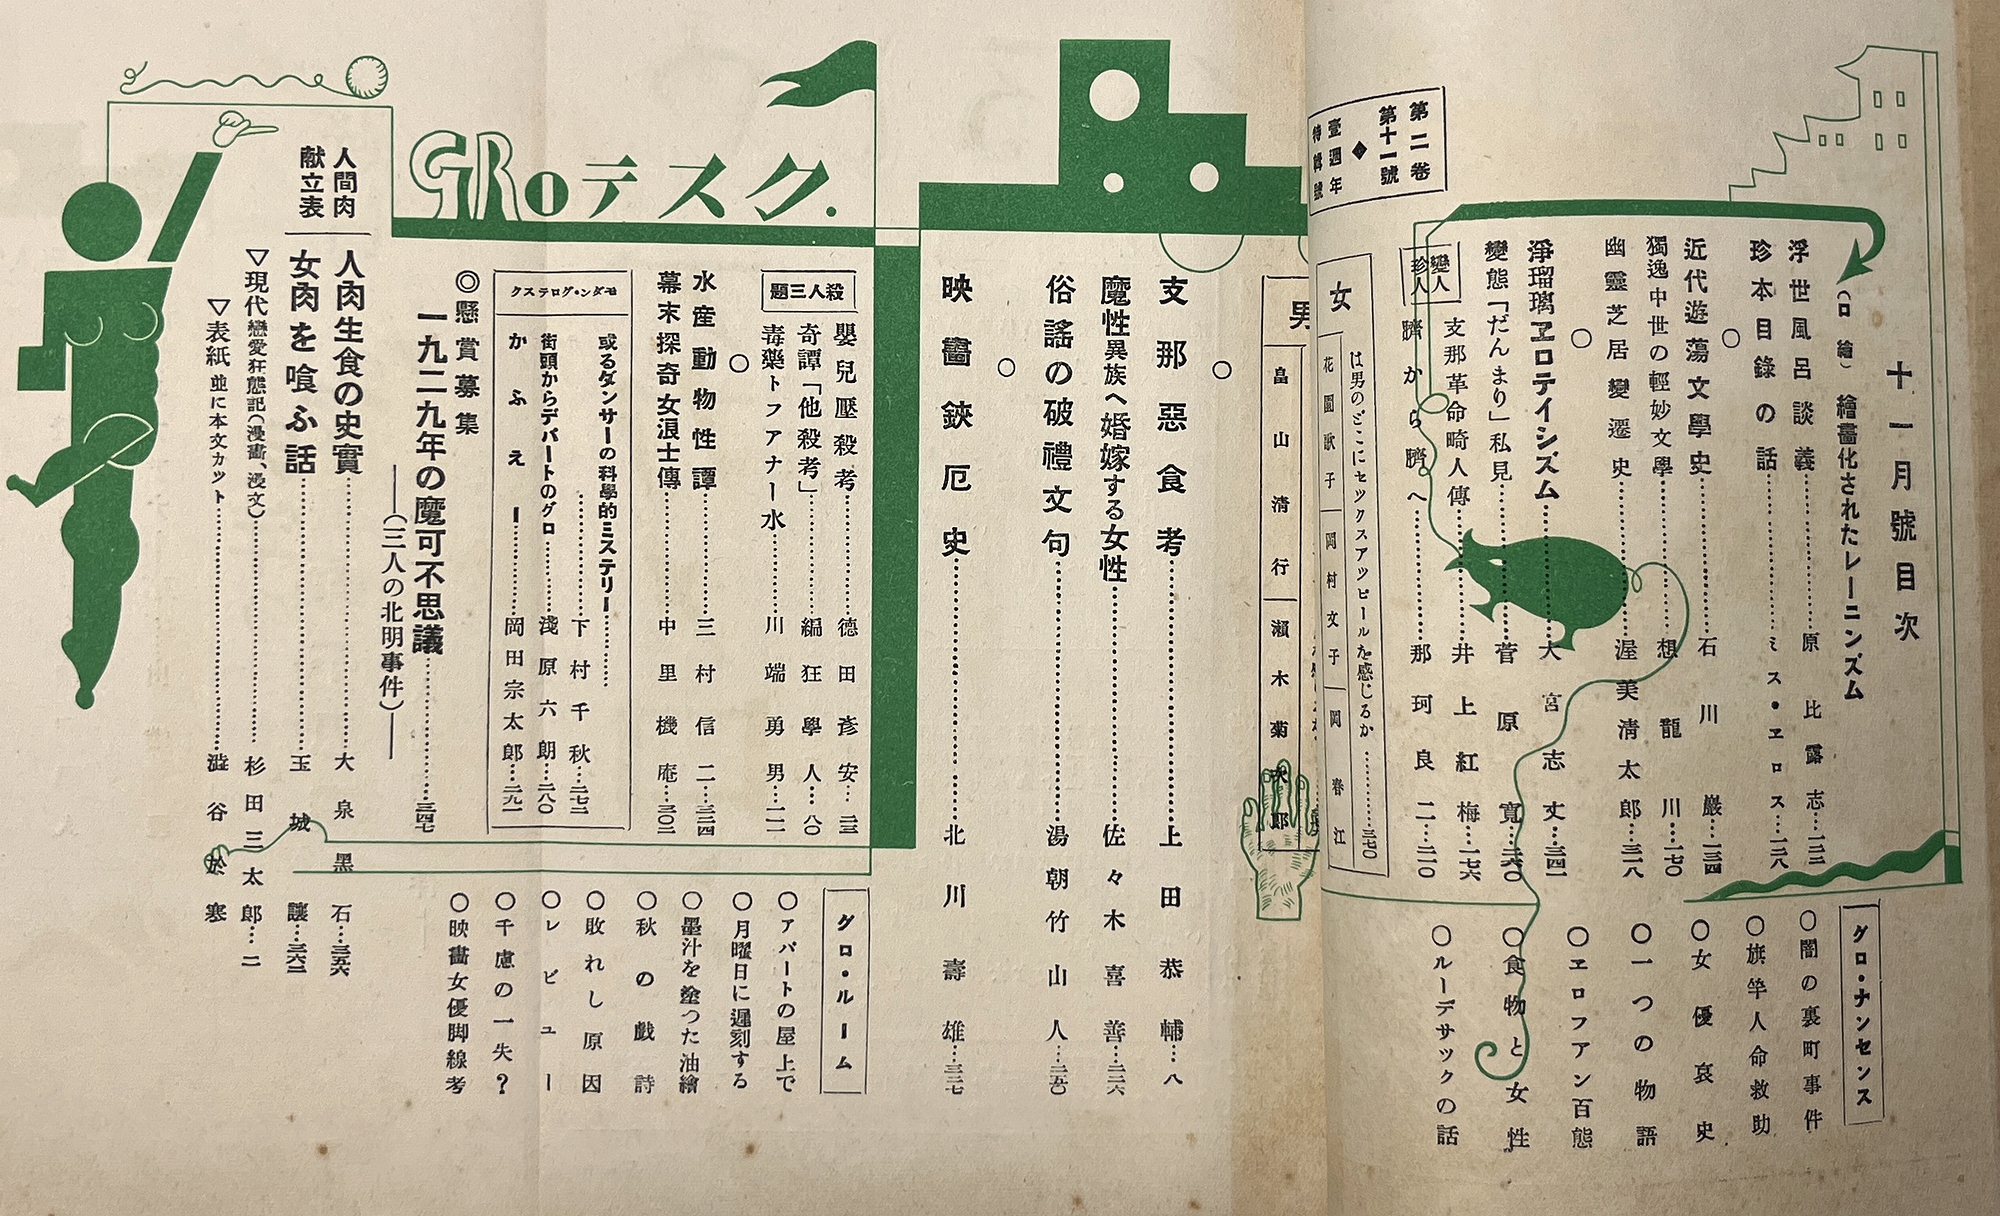 十一月號目次
(口繪)繪畫化されたレーニンズム
浮世風呂談義……原比露志…一二二
珍本目錄の話……ミス・エロス…一二八
○
近代遊蕩文學史……石川巖…一三四
獨逸中世の輕妙文學……想龍川…一七〇
幽靈芝居變遷史……渥美清太郎…三一八
○
淨瑠璃ヱロテイシズム……大宮志丈…三四一
變態「だんまり」私見……菅原寬…二六〇
變人珍人
支那革命畸人傳……井上紅梅…一七六
臍から臍へ……那珂良二…二一〇
第二卷
第十一號
◆
壹週年
特輯號
女
は男のどこにセックスアッピールを感じるか……三七〇
花園歌子
岡村文子
岡春江
男
畠山清行
瀨木菊
○
支那惡食考……上田恭輔…八
魔性異族へ婚嫁する女性……佐々木喜善…二三六
俗謠の破禮文句……湯朝竹山人…二五〇
○
映畵鋏厄史……北川壽雄…三三七
GROテスク.
殺人三題
嬰兒壓殺考……德田彥安…二三
奇譚「他殺考」……編狂學人…八〇
毒藥トフアナー水……川端勇男…一一一
○
水産動物性譚……三村信二…三二四
幕末探奇女浪士傳……中里機庵…三〇二
モダン・グロテスク
或るダンサーの科學的ミステリー……下村千秋…二七二
街頭からデパートのグロ……淺原六朗…二八〇
かふえー……岡田宗太郎…二九一
◎懸賞募集
一九二九年の魔可不思議……三四七
——(三人の北明事件)——
人間肉獻立表
人肉生食の史實……大泉黑石…三五六
女肉を喰ふ話……玉城讓…三六二
▽現代戀愛狂態記(漫畵、漫文)……杉田三太郎…二
▽表紙並に本文カット……澁谷於寒
グロ・ナンセンス
○闇の裏町事件
○旗竿人命救助
○女優哀史
○一つの物語
○ヱロフアン百態
○食物と女性
○ルーデサックの話
グロ・ルーム
○アパートの屋上で
○月曜日に遲刻する
○墨汁を塗つた油繪
○秋の戲詩
○敗れし原因
○レビユー
○千慮の一失?
○映畵女優脚線考